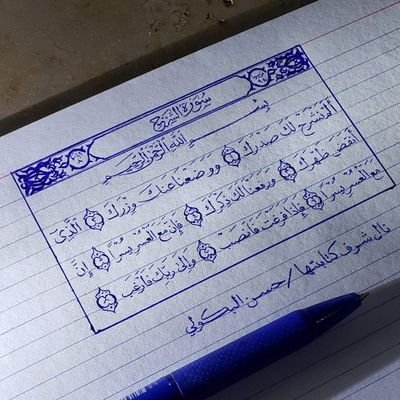 سورة الشرح
بسم الله الرحمن الرحيم
ألم نشرح لك صدرك ۝ ووضعنا عنك وزرك ۝ الذي
أنقض ظهرك ۝ ورفعنا لك ذكرك ۝ فإن مع العسر يسرا ۝ إن
مع العسر يسرا ۝ فإذا فرغت فانصب ۝ وإلى ربك فارغب ۝
نال شرف كتابتها / حسن البكولي